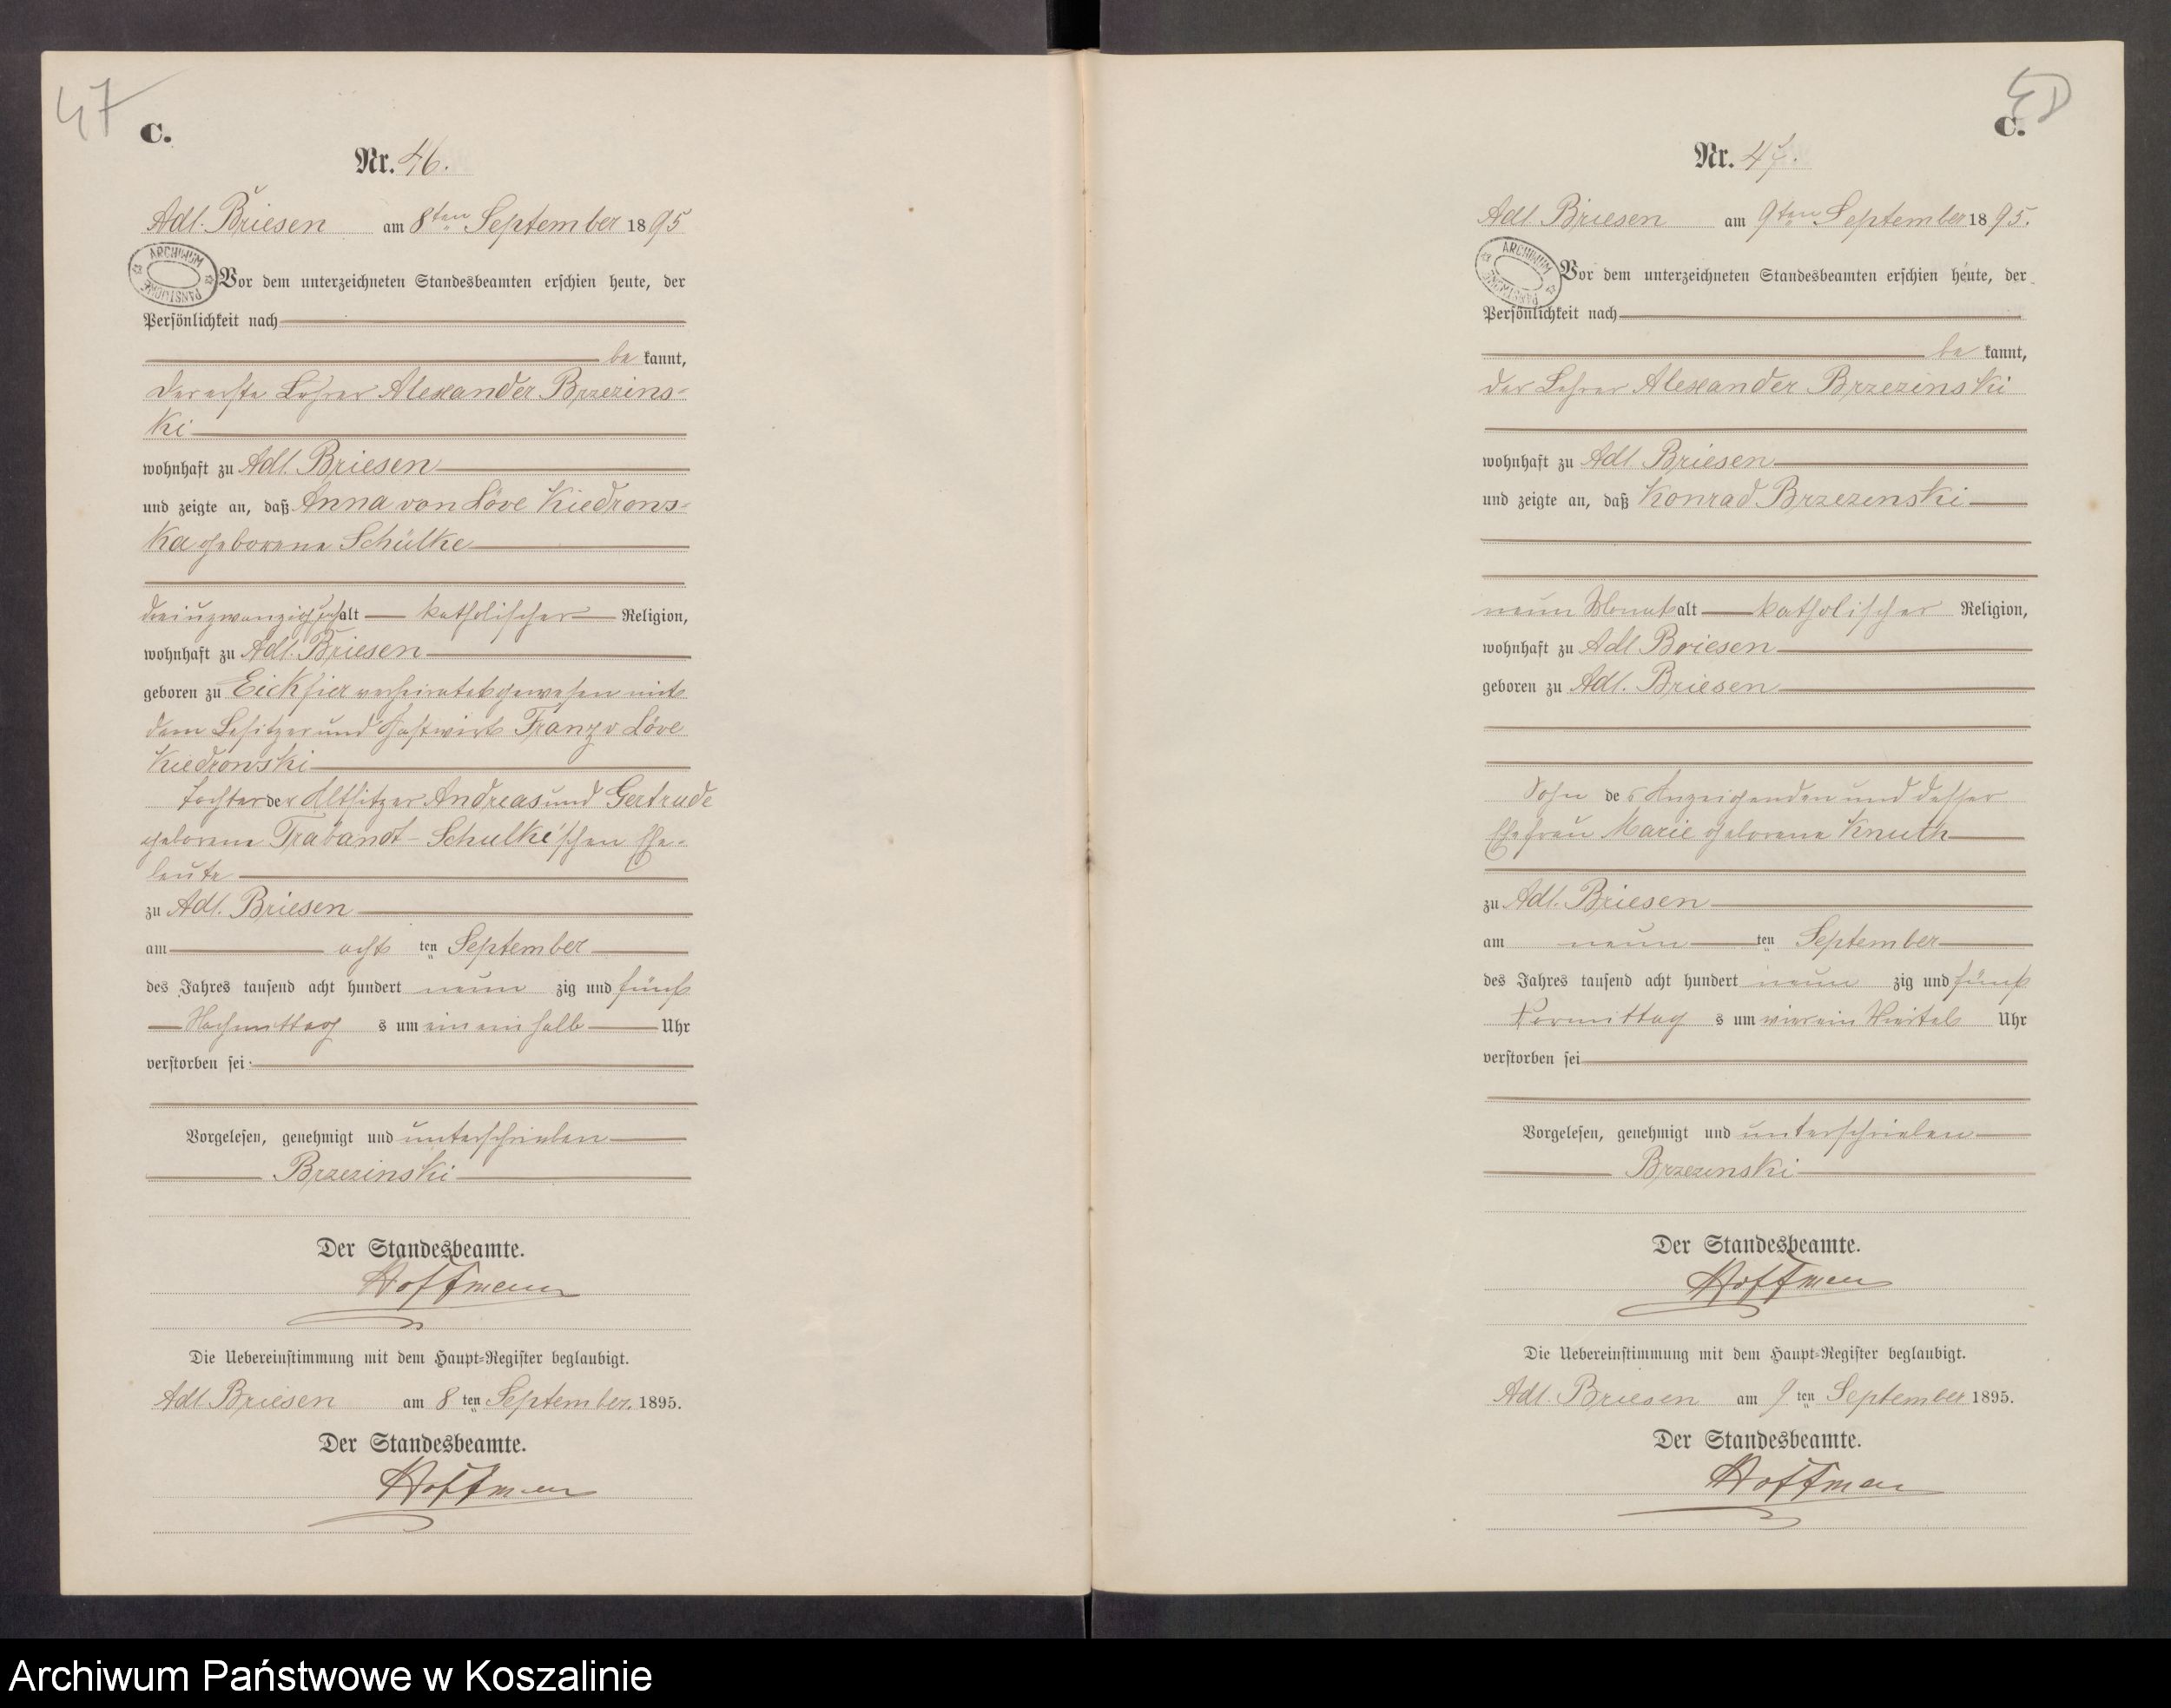 47
C.
Nr. 46.
Adl. Briesen am 8ten September 1895
ARCHIWUM PAŃSTWOWE
Vor dem unterzeichneten Standesbeamten erschien heute, der
Persönlichkeit nach
be kannt,
der erste Lehrer Alexander Brzezins-
ki
wohnhaft zu Adl. Briesen
und zeigte an, daß Anna von Löve Kiedrows-
ka geborene Schülke
alt katholischer Religion,
wohnhaft zu Adl. Briesen
geboren zu Eickfier verheiratet gewesen mit
dem Besitzer und Gastwirt Franz v Löve
Kiedrowski
Tochter der Altsitzer Andreas und Gertrude
geborene Trabandt-Schulke'schen Ehe-
leute
zu Adl. Briesen
am acht ten September
des Jahres tausend acht hundert neun zig und fünf
Nachmittag s um ein ein halb Uhr
verstorben sei
Vorgelesen, genehmigt und unterschrieben
Brzezinski
Der Standesbeamte.
Hoffmann
Die Uebereinstimmung mit dem Haupt-Register beglaubigt.
Adl. Briesen am 8 ten September 1895.
Der Standesbeamte.
Hoffmann
C.
Nr. 47.
Adl. Briesen am 9ten September 1895.
ARCHIWUM PAŃSTWOWE
Vor dem unterzeichneten Standesbeamten erschien heute, der
Persönlichkeit nach
be kannt,
der Lehrer Alexander Brzezinski
wohnhaft zu Adl. Briesen
und zeigte an, daß Konrad Brzezinski
neun Monat alt katholischer Religion,
wohnhaft zu Adl. Briesen
geboren zu Adl. Briesen
Sohn des Anzeigenden und dessen
Ehefrau Marie geborene Knuth
zu Adl. Briesen
am neun ten September
des Jahres tausend acht hundert neun zig und fünf
Vormittag s um vier ein Viertel Uhr
verstorben sei
Vorgelesen, genehmigt und unterschrieben
Brzezinski
Der Standesbeamte.
Hoffmann
Die Uebereinstimmung mit dem Haupt-Register beglaubigt.
Adl. Briesen am 9 ten September 1895.
Der Standesbeamte.
Hoffmann
Archiwum Państwowe w Koszalinie